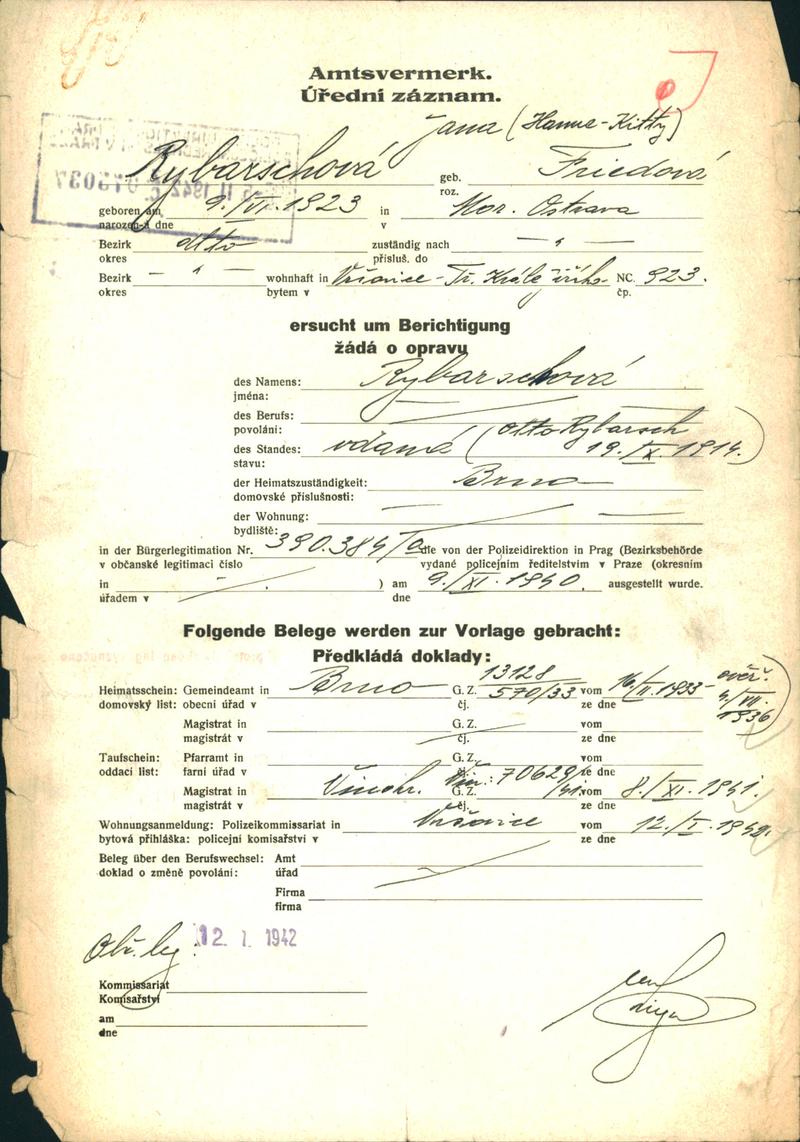 Amtsvermerk.
Úřední záznam.
Jana (Hanna-Kitty)
Rybarschová geb. Friedová
roz.
geboren am 9./VI. 1923 in Mor. Ostrava
narozen-a dne v
Bezirk dtto zuständig nach — " —
okres přísluš. do
Bezirk — " — wohnhaft in Vršovice - Tř. Krále Jiřího NC. 923.
okres bytem v čp.
ersucht um Berichtigung
žádá o opravu
des Namens: Rybarschová
jména:
des Berufs:
povolání:
des Standes: vdaná (Otto Rybarsch
stavu: 19./IX. 1914.)
der Heimatszuständigkeit: Brno
domovské příslušnosti:
der Wohnung:
bydliště:
in der Bürgerlegitimation Nr. 390.384/a die von der Polizeidirektion in Prag (Bezirksbehörde
v občanské legitimaci číslo vydané policejním ředitelstvím v Praze (okresním
in ) am 9./XI. 1940. ausgestellt wurde.
úřadem v dne
Folgende Belege werden zur Vorlage gebracht:
Předkládá doklady:
Heimatsschein: Gemeindeamt in Brno G. Z. 13128 570/33 vom 16/II. 1933 - ověř.
domovský list: obecní úřad v čj. ze dne 4/VII. 1936)
Magistrat in G. Z. vom
magistrát v čj. ze dne
Taufschein: Pfarramt in G. Z. vom
oddací list: farní úřad v čj. ze dne
Magistrat in Vinohr. G. Z. 70629/41. vom 8./XI. 1941.
magistrát v čj. ze dne
Wohnungsanmeldung: Polizeikommissariat in Vršovice vom 12./I. 1942.
bytová přihláška: policejní komisařství v ze dne
Beleg über den Berufswechsel: Amt
doklad o změně povolání: úřad
Firma
firma
Obč. leg. 12. 1. 1942
Kommissariat
Komisařství
am
dne